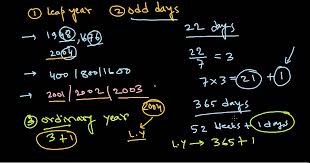 ① leap year ② odd days
→ 1948, 1676
2004
→ 400/800/1600
→ 2001/2002/2003
③ ordinary year
3+1
2004
L.Y
22 days
22/7 = 3
7×3 = 21 + 1
365 days
52 weeks + 1 days
L.Y → 365+1